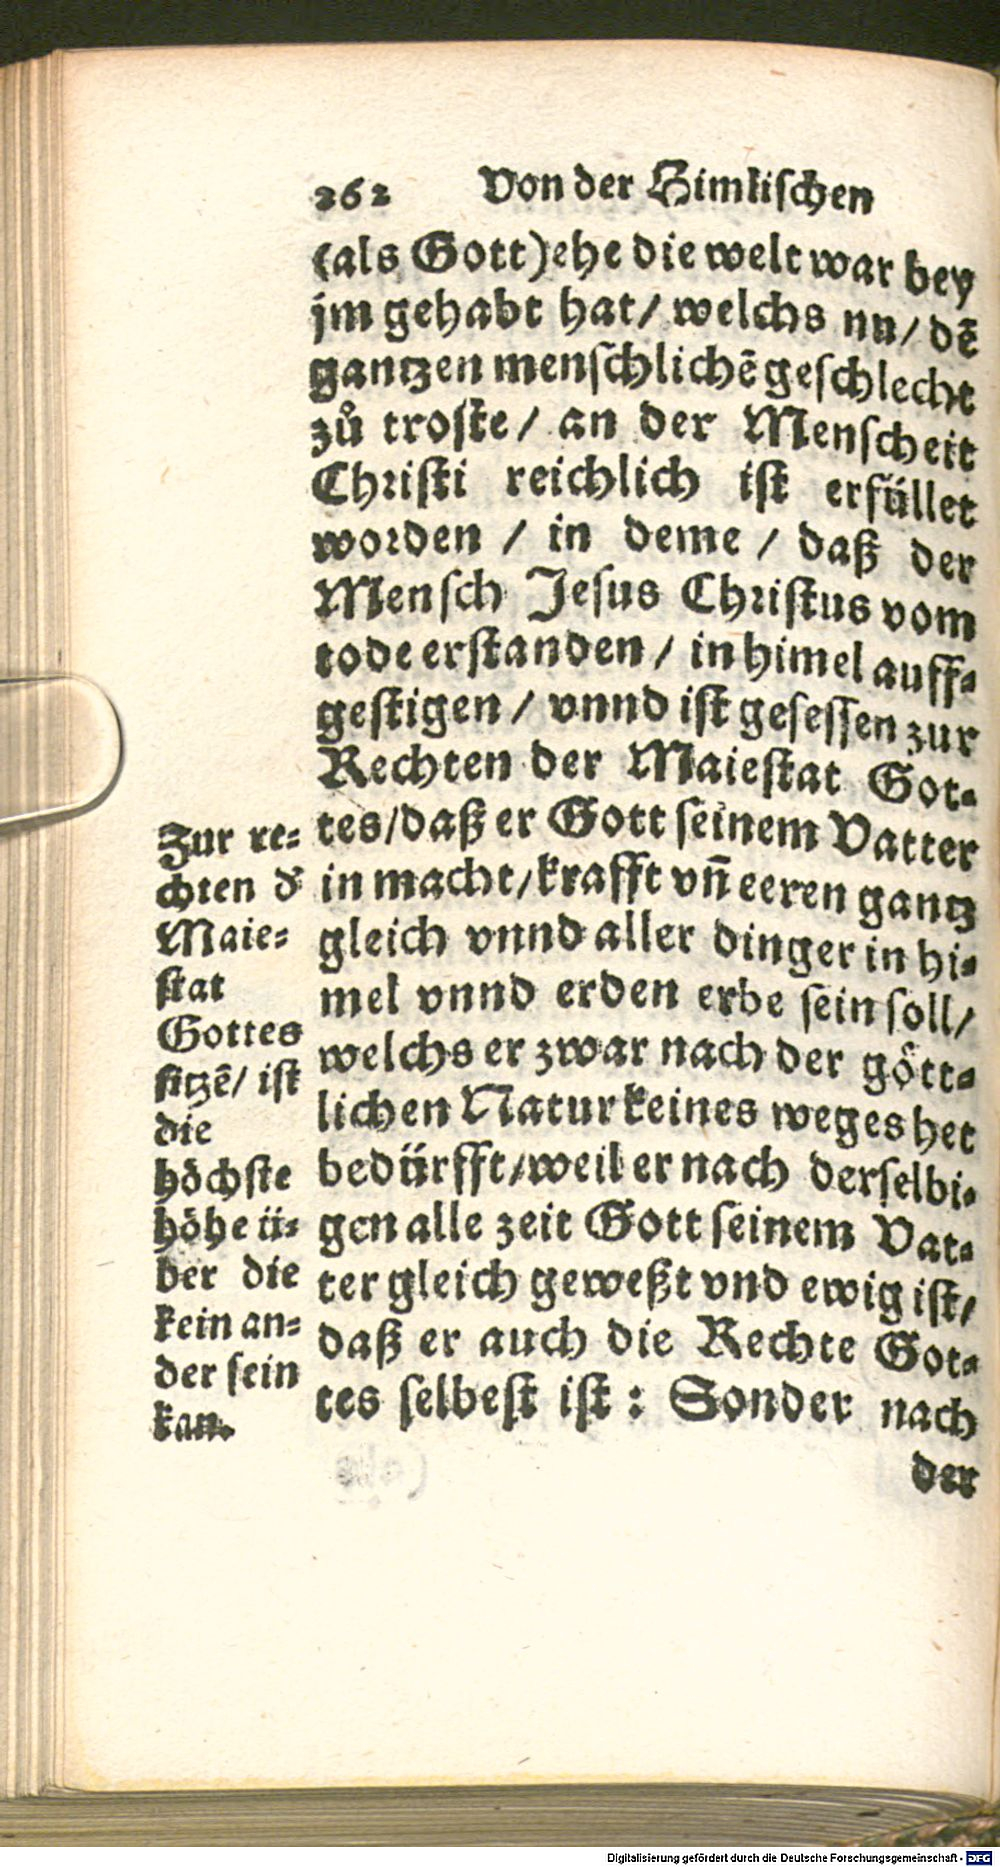 262 Von der Himlischen
(als Gott) ehe die welt war bey
jm gehabt hat / welchs nu / dē
gantzen menschlichē geschlecht
zů troste / an der Menscheit
Christi reichlich ist erfüllet
worden / in deme / daß der
Mensch Jesus Christus vom
tode erstanden / in himel auff-
gestigen / vnnd ist gesessen zur
Rechten der Maiestat Got-
tes / daß er Gott seinem Vatter
in macht / krafft vn̄ eeren gantz
gleich vnnd aller dinger in hi-
mel vnnd erden erbe sein soll /
welchs er zwar nach der gött-
lichen Natur keines weges het
bedürfft / weil er nach derselbi-
gen alle zeit Gott seinem Vat-
ter gleich geweßt vnd ewig ist /
daß er auch die Rechte Got-
tes selbest ist : Sonder nach
der
Zur re-
chten d'
Maie-
stat
Gottes
sitzē / ist
die
höchste
höhe ü-
ber die
kein an-
der sein
kan.
Digitalisierung gefördert durch die Deutsche Forschungsgemeinschaft - DFG